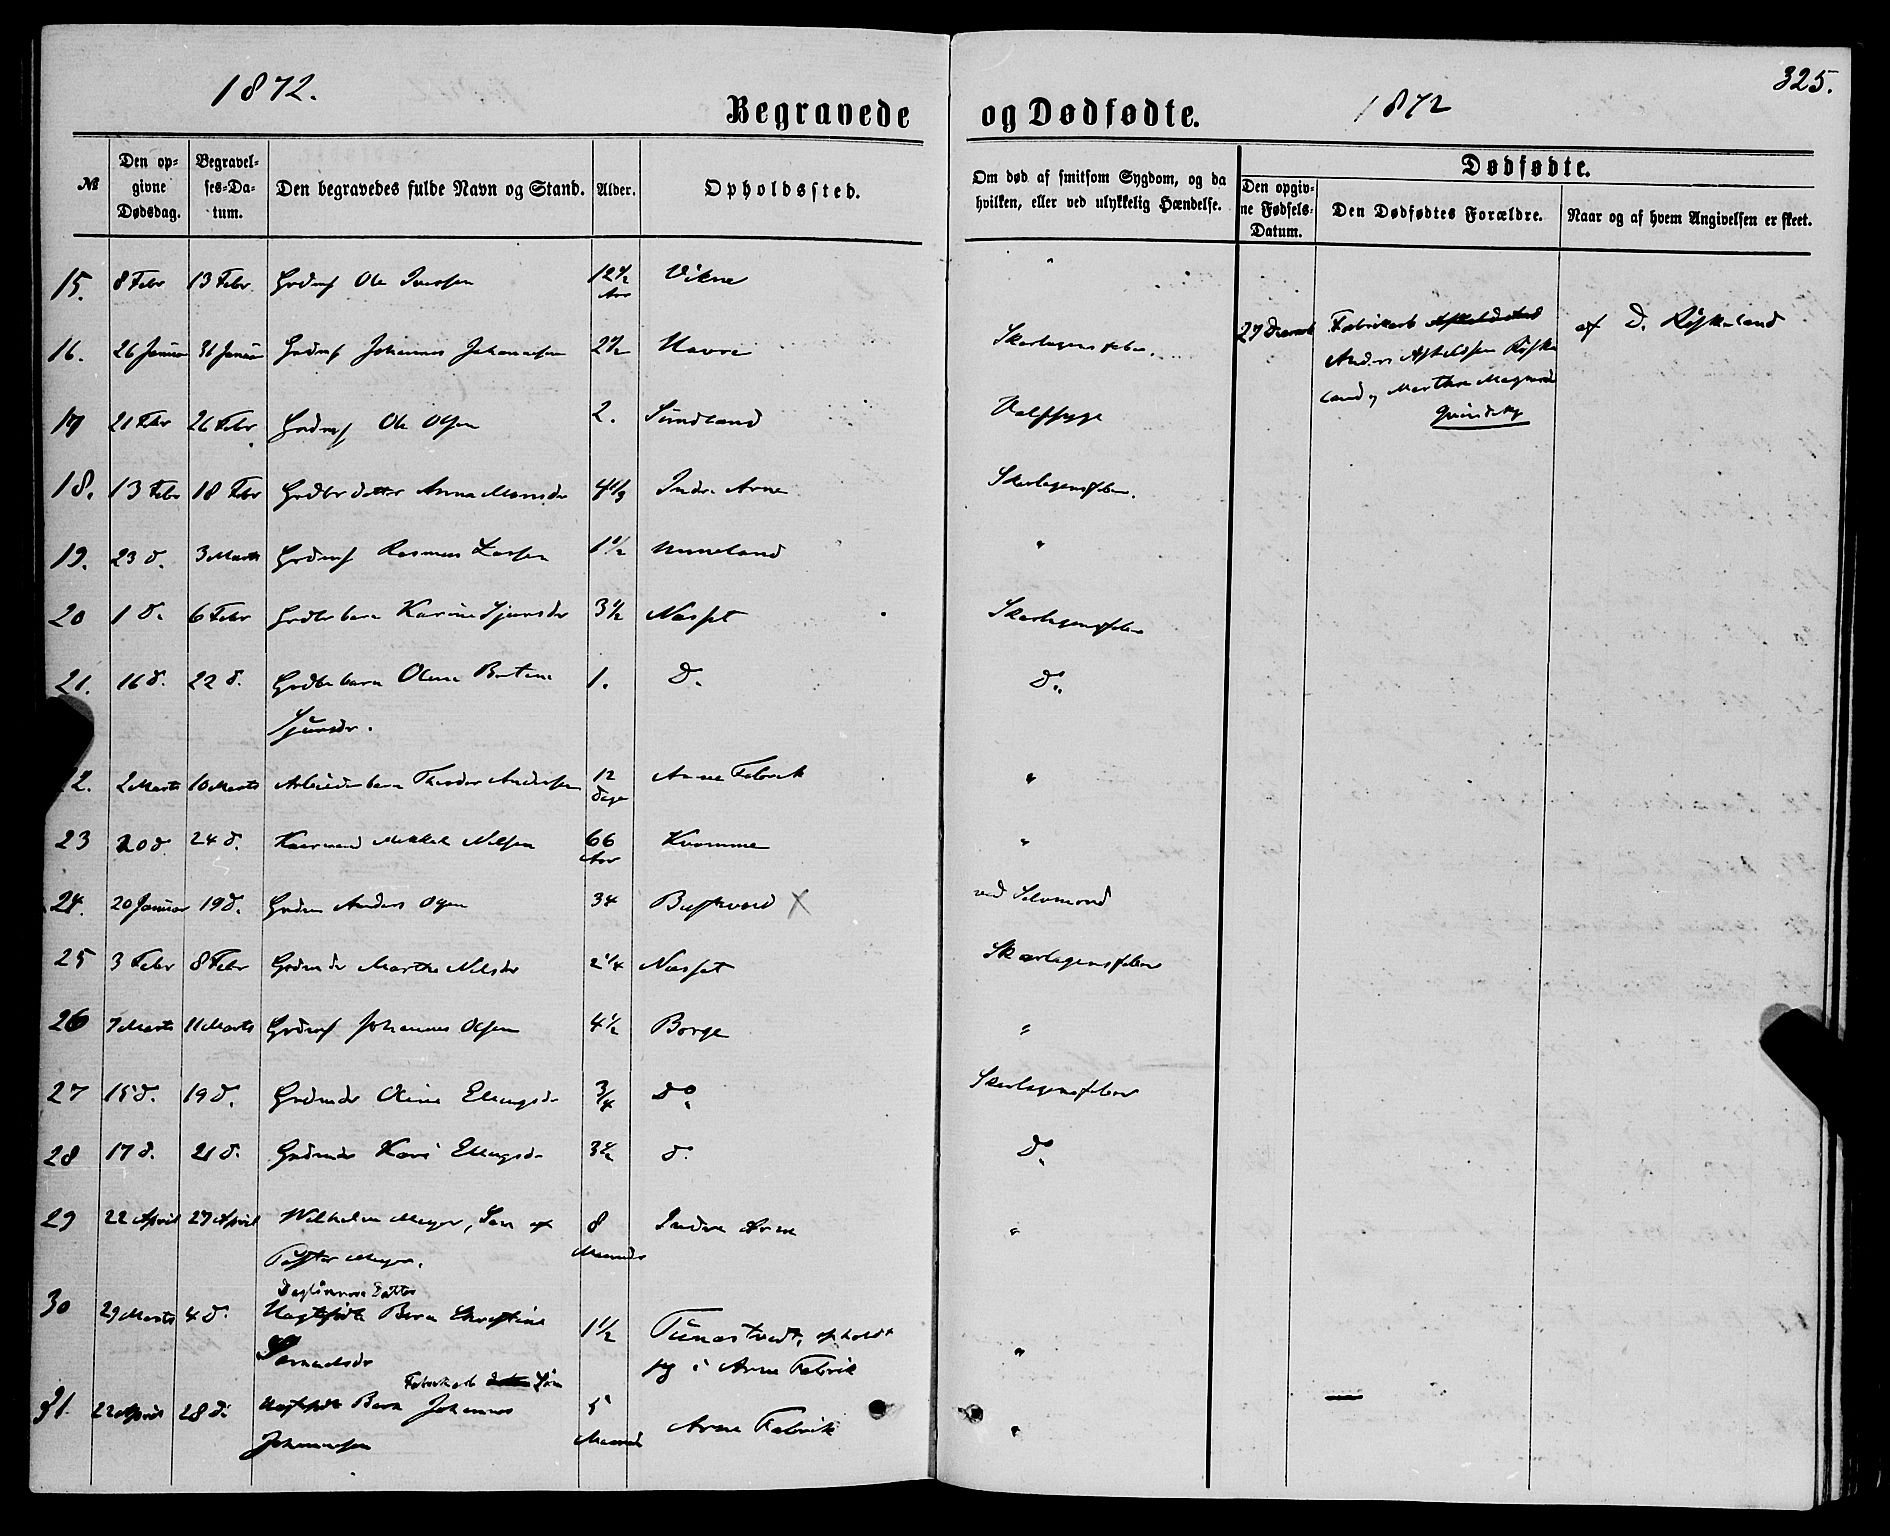 1872.
Begravede og Dødfødte.
1872
325.
№
Den opgivne Dødsdag.
Begravelses-Datum.
Den begravedes fulde Navn og Stand.
Alder.
Opholdssted.
Om død af smitsom Sygdom, og da hvilken, eller ved ulykkelig Hændelse.
Dødfødte.
Den opgivne Fødsels-Datum.
Den Dødfødtes Forældre.
Naar og af hvem Angivelsen er skeet.
15. 8 Febr 13 Febr. Grdms Ole Iversen 12 1/2 Aar Vikne "
16. 26 Januar 31 Januar Grdms Johannes Johannesen 2 1/2 Havre Skarlagensfeber.
27 Fabrikarb
Anders Askeldsen Røske
land og Martha Magnesd
Qvindekj
af D. Røskeland
17 21 Febr 26 Febr Grdms Ole Olsen 2. Sundland Halssyge
18. 13 Febr 18 Febr Grdbr datter Anna Monsdr 4 1/3 Indre Arne Skarlagensfeber.
19. 23 d. 3 Marts Grdms Rasmus Larsen 1 1/2 Unneland "
20 1 d. 6 Febr Grdbr barn Karine Sjursdr 3 1/2 Næsset Skarlagensfeber
21. 16 d. 22 d. Grdbr barn Oline Bertine 1. D. Do.
Sjursdr.
2. 2 Marts 10 Marts Arbeider barn Theodor Andersen 12 Dage Arne Fabrik "
23 20 d. 24 d. Kaarmand Mikkel Nilsen 66 Aar Kvamme "
24. 20 Januar 19 d. Grdm Anders Olsen 34 Burkvard X ved Selvmord
25 3 Febr 8 Febr Grdmdr Martha Nilsdr 2 1/4 Næsset Skarlagensfeber
26 7 Marts 11 Marts Grdms Johannes Olsen 4 1/2 Borge "
27 15 d. 19 d. Grdmdr Oline Ellingsdr 3/4 Do. Skarlagensfeber
28 17 d. 21 d. Grdmdr Kari Ellingsdr 3 1/2 d. Do.
29 22 April 27 April Wilhelm Meyer, Søn af 8 Maaneder Indre Arne "
Meyer.
Daglønner Datter
30 29 Marts 4 d. Uægtefødte Barn Christine 1 1/2 Tunestvedt, opholdt "
sig i Arne Fabrik
Fabrikarb Søn
31. 22 April 28 d. Uægtefødt Barn Johannes 5 Maaneder Arne Fabrik "
Johannesen